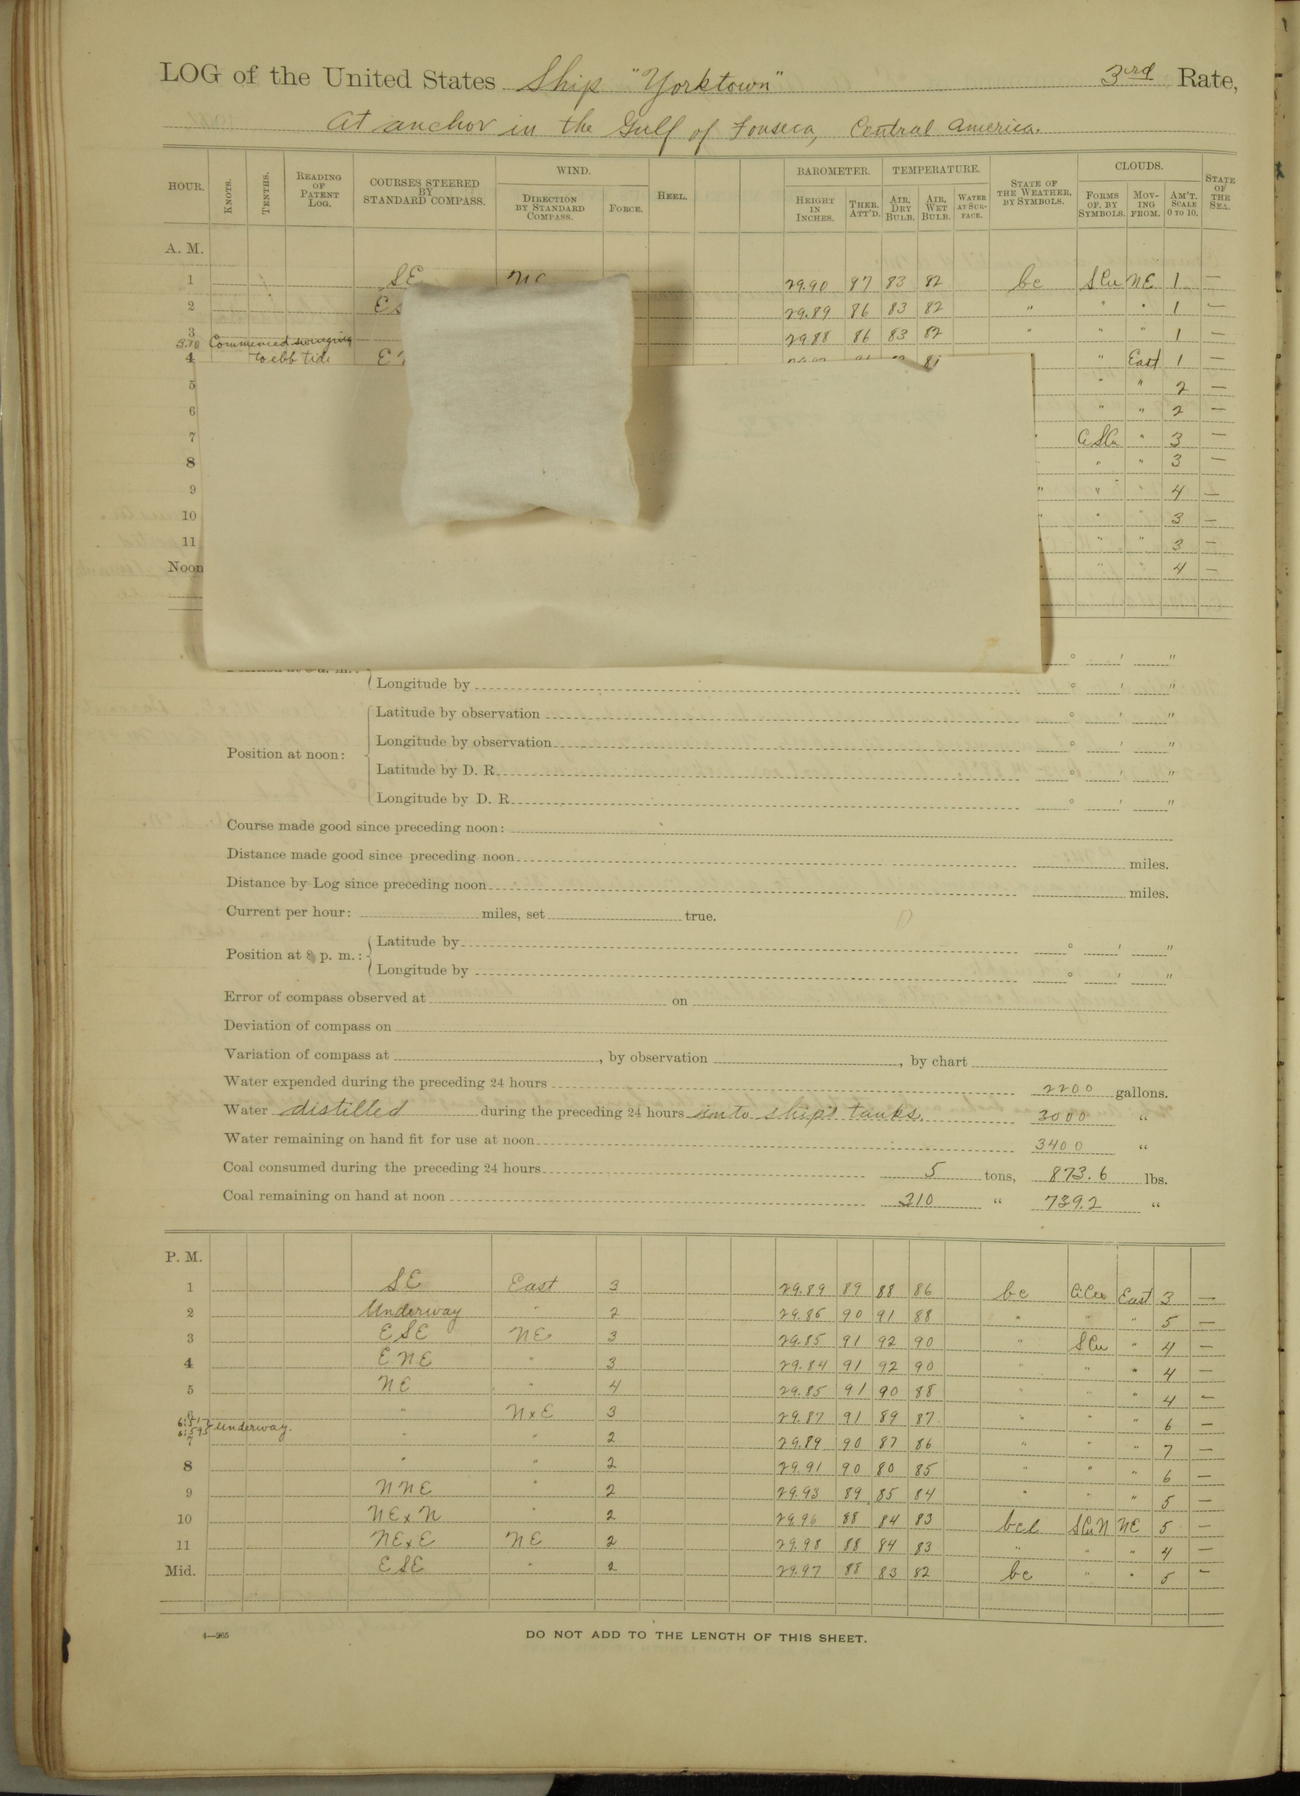 LOG of the United States Ship "Yorktown" 3rd Rate,
At anchor in the Gulf of Fonseca, Central America.
HOUR. KNOTS. TENTHS. READING OF PATENT LOG. COURSES STEERED BY STANDARD COMPASS. WIND. DIRECTION BY STANDARD COMPASS. FORCE. HEEL. BAROMETER. HEIGHT IN INCHES. THER. ATT'D. TEMPERATURE. AIR, DRY BULB. AIR, WET BULB. WATER AT SURFACE. STATE OF THE WEATHER, BY SYMBOLS. CLOUDS. FORMS OF, BY SYMBOLS. MOVING FROM. AM'T. SCALE 0 TO 10. STATE OF THE SEA.
A. M.
1 SE 29.90 87 83 82 bc SCu NE 1 —
2 29.89 86 83 82 " " " 1 —
3 29.88 86 83 82 " " 1 —
Commenced swinging
to ebb tide
4 " East 1 —
5 " " 2 —
6 " " 2 —
7 " 3 —
8 " " 3 —
9 " " " 4 —
10 " " " 3 —
11 " " 3 —
Noon " " 4 —
° ' "
Longitude by ° ' "
Position at noon:
Latitude by observation ° ' "
Longitude by observation ° ' "
Latitude by D. R. ° ' "
Longitude by D. R. ° ' "
Course made good since preceding noon:
Distance made good since preceding noon miles.
Distance by Log since preceding noon miles.
Current per hour: miles, set true.
Position at 8 p. m.:
Latitude by ° ' "
Longitude by ° ' "
Error of compass observed at on
Deviation of compass on
Variation of compass at , by observation , by chart
Water expended during the preceding 24 hours 2200 gallons.
Water distilled during the preceding 24 hours into ship's tanks. 3000 "
Water remaining on hand fit for use at noon 3400 "
Coal consumed during the preceding 24 hours 5 tons, 873.6 lbs.
Coal remaining on hand at noon 210 " 739.2 "
P. M.
1 SE East 3 29.89 89 88 86 bc East 3 —
2 Underway " 2 29.86 90 91 88 " " " 5 —
3 ESE NE 3 29.85 91 92 90 " SCu " 4 —
4 ENE " 3 29.84 91 92 90 " " " 4 —
5 NE " 4 29.85 91 90 88 " " " 4 —
6 " NxE 3 29.87 91 89 87 " " " 6 —
Underway.
7 " " 2 29.89 90 87 86 " " " 7 —
8 " " 2 29.91 90 80 85 " " " 6 —
9 NNE " 2 29.93 89 85 84 " " " 5 —
10 NExN " 2 29.96 88 84 83 bcl SCuN NE 5 —
11 NExE NE 2 29.98 88 84 83 " " " 4 —
Mid. ESE " 2 29.97 88 83 82 bc " " 5 —
4—265
DO NOT ADD TO THE LENGTH OF THIS SHEET.